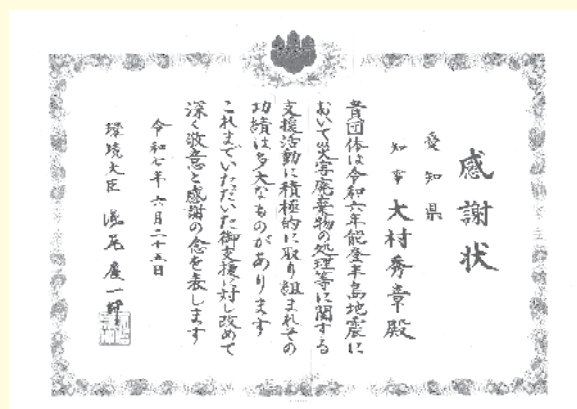 感謝状
愛知県
知事 大村秀章殿
貴団体は令和六年能登半島地震に
おいて災害廃棄物の処理等に関する
支援活動に積極的に取り組まれその
功績は多大なものがあります
これまでいただいた御支援に対し改めて
深く敬意と感謝の念を表します
令和七年六月二十五日
環境大臣 浅尾慶一郎